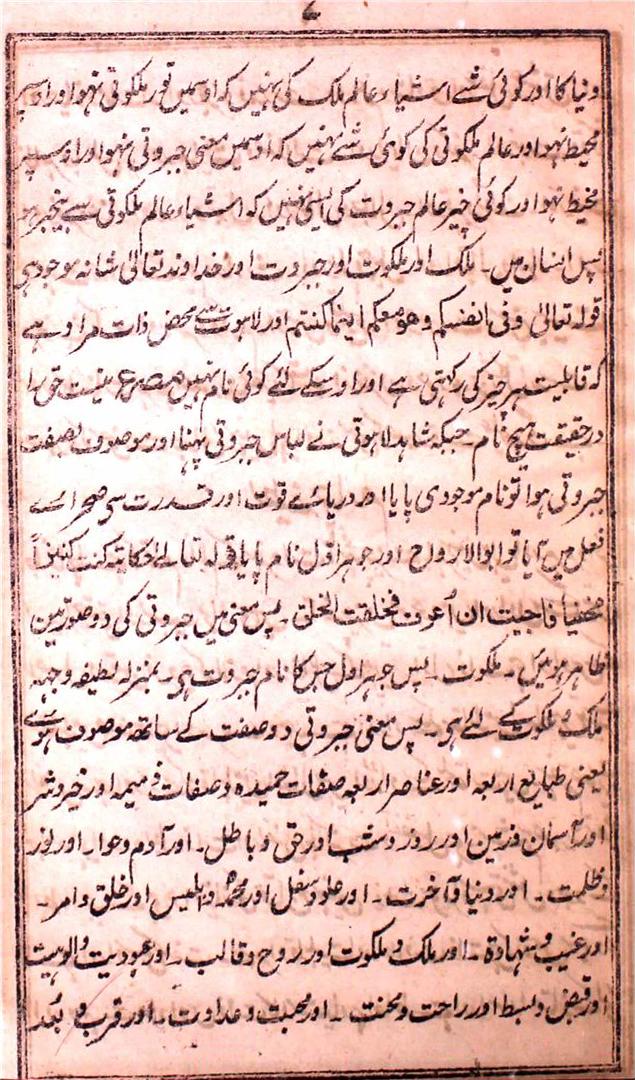 ۷
دنیا کا اور کوئی شے اشیاء عالم ملک کی نہیں کہ اوسمیں نور ملکوتی نہو اور اوسپر
محیط نہو اور عالم ملکوتی کی کوئی شے نہیں کہ اوسمیں معنی جبروتی نہو اور اوسپر
محیط نہو اور کوئی چیز عالم جبروت کی ایسی نہیں کہ اشیاء عالم ملکوتی سے بیخبر ہو
پس انسان میں۔ ملک اور ملکوت اور جبروت اور خداوند تعالیٰ شانہ موجود ہی
قولہ تعالیٰ وفی انفسکم وھو معکم اینما کنتم اور لاہوت سے محض ذات مراد ہے
کہ قابلیت ہر چیز کی رکہتی ہے اور اوسکے لئے کوئی نام نہیں مصرع نیست حق را
در حقیقت ہیچ نام۔ جبکہ شاہد لاہوتی نے لباس جبروتی پہنا اور موصوف بصفت
جبروتی ہوا تو نام موجودی پایا اور دریائے قوت اور قدرت سی صحرائے
فعل میں آیا تو ابوالارواح اور جوہر اول نام پایا قولہ تعالےٰ حکایتہ کنت کنزاً
مخفیاً فاحببت ان اُعرف فخلقت الخلق۔ پس معنی میں جبروتی کی دو صورتین
ظاہر ہوئیں۔ ملکوت۔ پس جوہر اول جس کا نام جبروت ہی۔ بمنزلہ لطیفہ وجہہ
ملک و ملکوت کے لئے ہی۔ پس معنی جبروتی دو صفت کے ساتھ موصوف ہوئے
یعنی طبایع اربعہ اور عناصر اربعہ صفات حمیدہ و صفات ذمیمہ اور خیر و شر
اور آسمان و زمین اور روز و شب اور حق و باطل۔ اور آدم و حوا۔ اور نور
و ظلمت۔ اور دنیا و آخرت۔ اور علو و سفل اور محمدؐ و ابلیس اور خلق و امر۔
اور غیب و شہادۃ۔ اور ملک و ملکوت اور روح و قالب۔ اور عبودیت و الوہیت
اور قبض و بسط اور راحت و محنت۔ اور محبت و عداوت۔ اور قرب و بُعد